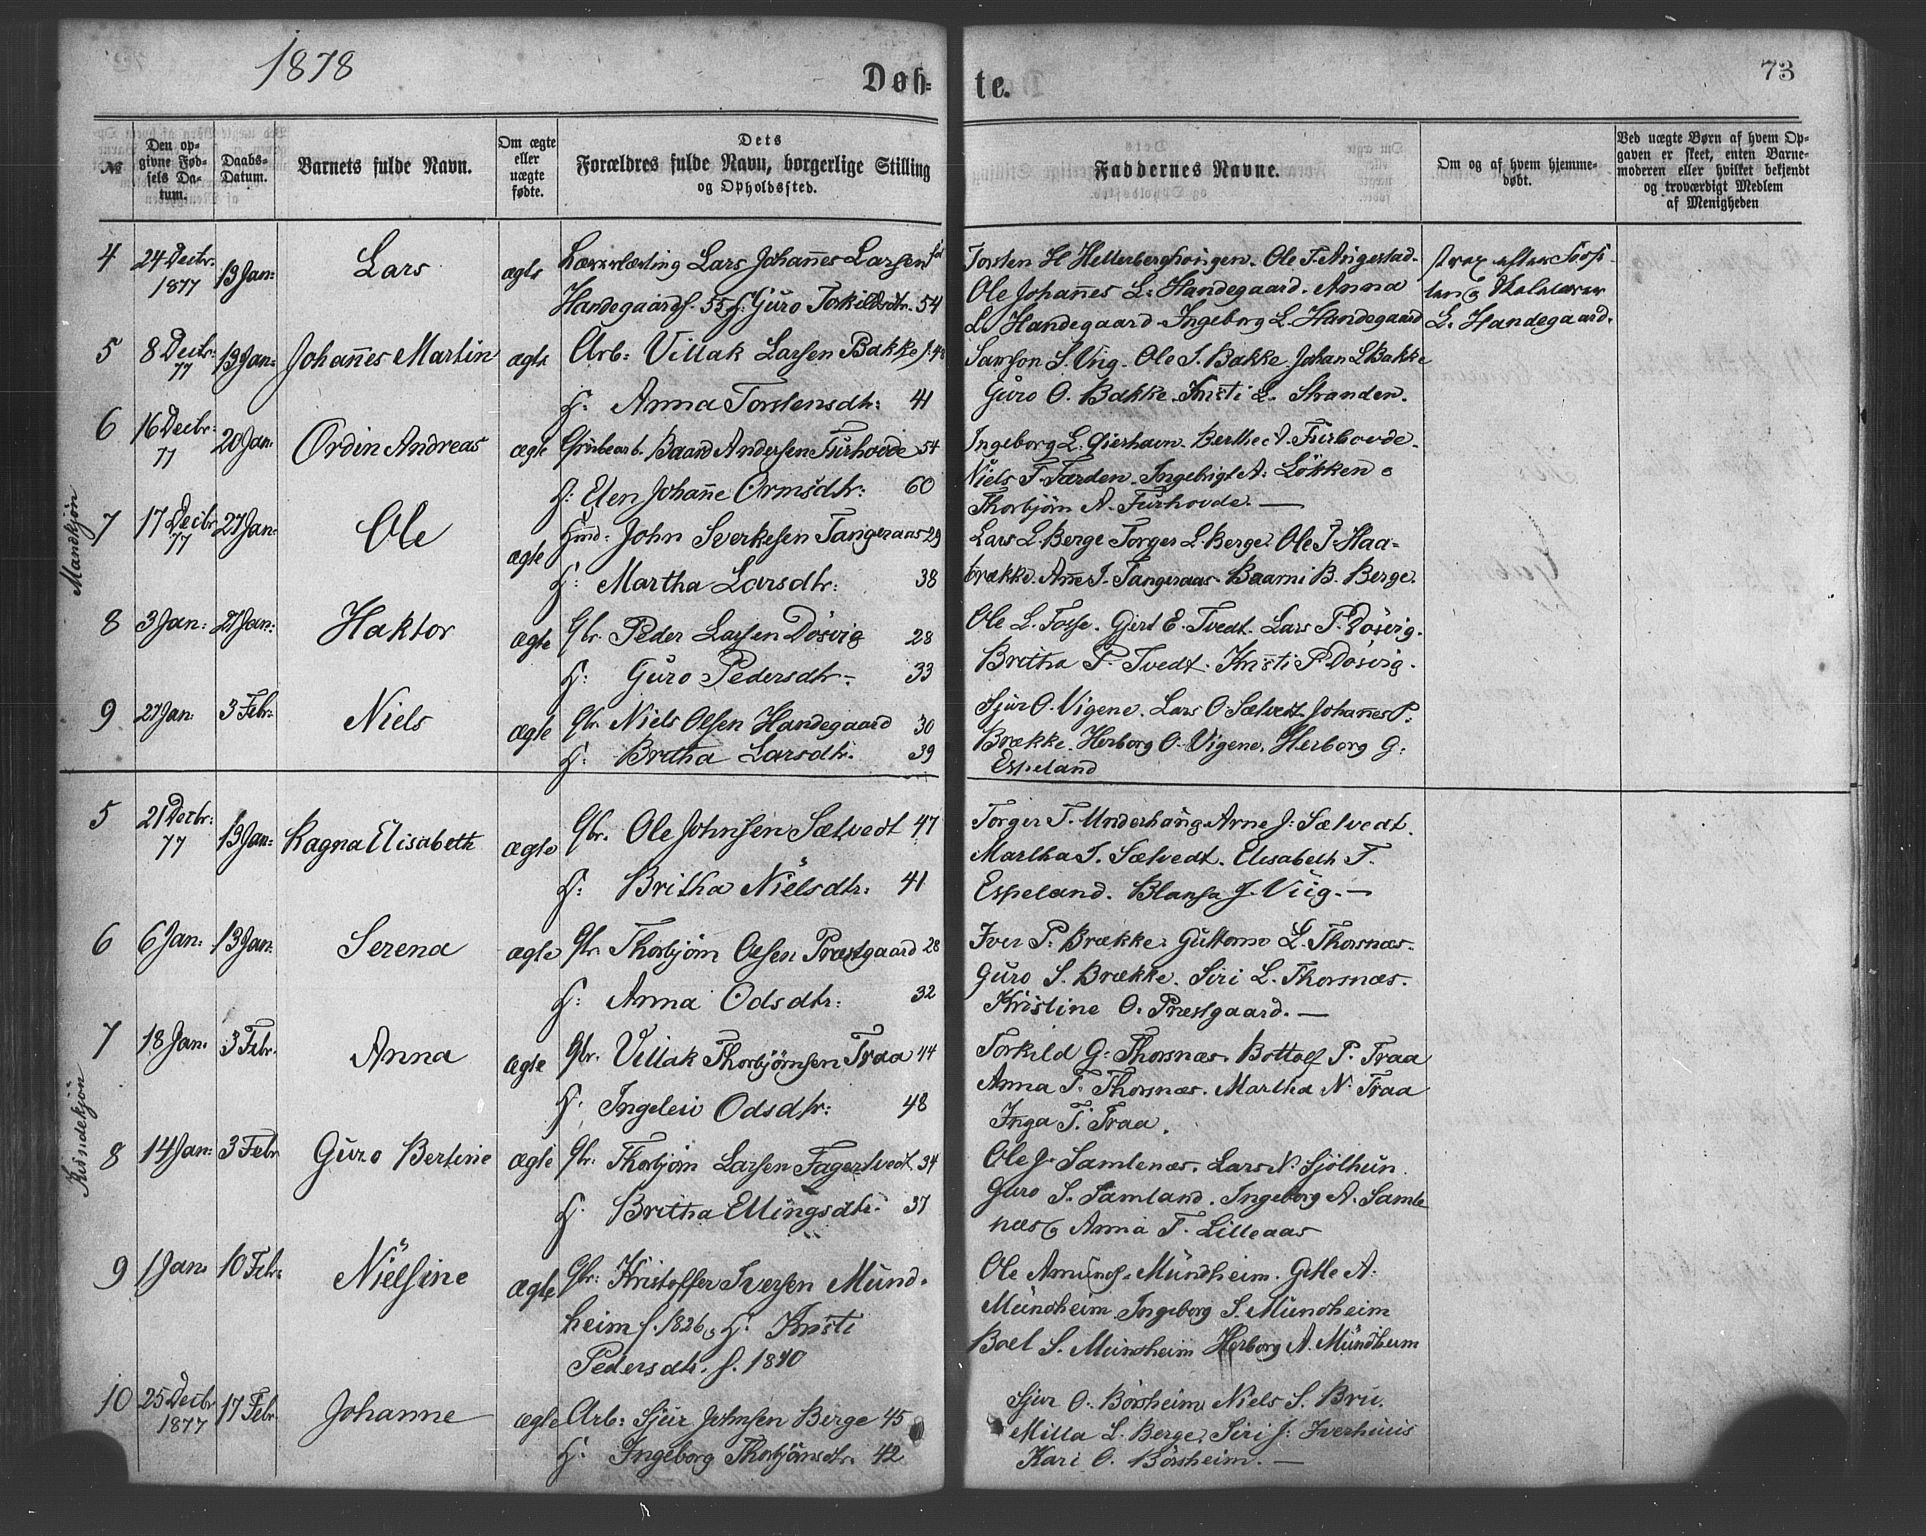 1878
73
Døb-
te.
№
Den op-
givne Fød-
sels Da-
tum.
Daabs-
Datum.
Barnets fulde Navn.
Om ægte
eller
uægte
fødte.
Dets
Forældres fulde Navn, borgerlige Stilling
og Opholdssted.
Faddernes Navne.
Om og af hvem hjemme-
døbt.
Ved uægte Børn af hvem Op-
gaven er skeet, enten Barne-
moderen eller hvilket bekjendt
og troværdigt Medlem
af Menigheden
Mandkjøn
4 24 Decbr. 13 Jan: Lars ægte Lars Johannes Larsen
1877
Handegaard f. 55 H: Guro Torkildsdtr. 54
Torsten H Ole T. Angestad.
Ole Johannes L. Handegaard. Anna
L. Handegaard. Ingeborg L. Handegaard
strax efter
L. Handegaard.
5 8 Decbr: 13 Jan: Johannes Martin ægte Arb: Villak Larsen Bakke f. 48
77
H: Anna Torstensdtr: 41
Samson S. Viig. Ole S. Bakke. Johan L Bakke
Guro O. Bakke. Kristi L. Stranden.
6 16 Decbr: 20 Jan: Ordin Andreas ægte Grubearb. Baard Andersen Furhovde 54
77
H: Elen Johanne Ormsdtr: 60
Ingeborg L. Gierhavn. Berthe A. Furhovde.
Niels T. Tarden. Ingebrigt A. Løkken
Thorbjørn A. Furhovde. —
7 17 Decbr 27 Jan: Ole ægte Hmd: John Sverkesen Tangeraas 29
77
H: Martha Larsdtr: 38
Lars L. Berge Torger L. Berge. Ole J. Haa-
brække. Anne J. Tangeraas. Baarni B. Berge.
8 3 Jan: 27 Jan: Haktor ægte Gbr. Peder Larsen Døsvig 28
H: Guro Pedersdtr. 33
Ole L. Fosse. Gjert E. Tvedt. Lars P. Døsvig.
Britha P. Tvedt. Kristi P Døsvig.
9 27 Jan: 3 Febr: Niels ægte Gbr. Niels Olsen Handegaard 30
H: Britha Larsdtr. 39
Sjur O. Vigene. Lars O. Sælvedt. Johannes P.
Brække. Herborg O. Vigene. Herborg G:
Espeland
Kvindekjøn
5 21 Decbr: 13 Jan: Ragna Elisabeth ægte Gbr. Ole Johnsen Sælvedt 47
77
H: Britha Nielsdtr: 41
Torger T. Underhaug. Arne J. Sælvedt.
Martha J. Sælvedt. Elisabeth T.
Espeland. Blansa J. Viig. —
6 6 Jan: 13 Jan: Serena ægte Gbr. Thorbjørn Olsen Præstgaard 28
H: Anna Odsdtr: 32
Iver P. Brække. Guttorm L. Thorsnæs.
Guro S. Brække. Siri L. Thorsnæs.
Kristine O. Præstgaard. —
7 18 Jan. 3 Febr. Anna ægte Gbr. Villak Thorbjørnsen Traa 44
H: Ingelein Odsdtr: 48
Torkild G: Thorsnæs. Bottolf P. Traa
Anna T. Thorsnæs. Martha N. Traa
Inga T. Traa.
8 14 Jan: 3 Febr Guro Bertine ægte Gbr. Thorbjørn Larsen Fagertvedt 34
H: Britha Ellingsdtr. 37
Ole J. Samlenæs. Lars N. Sjølhun.
Guro S. Samland. Ingeborg A. Samle
næs Anna T. Lilleaas
9 1 Jan. 10 Febr: Nielsine ægte Gbr: Kristoffer Iversen Mund-
heim f. 1826 H: Kristi
Pedersdtr. f. 1840
Ole Amunds. Mundheim. Gitle A:
Mundheim Ingeborg S. Mundheim
Boel S. Mundheim Herborg A. Mundheim
10 25 Decbr 17 Febr Johanne ægte Arb: Sjur Johnsen Berge 45
1877
H: Ingeborg Thorbjørnsdtr. 42
Sjur O. Børsheim Niels S. Bru.
Milla L. Berge. Siri J. Iverhuus
Kari O. Børsheim. —